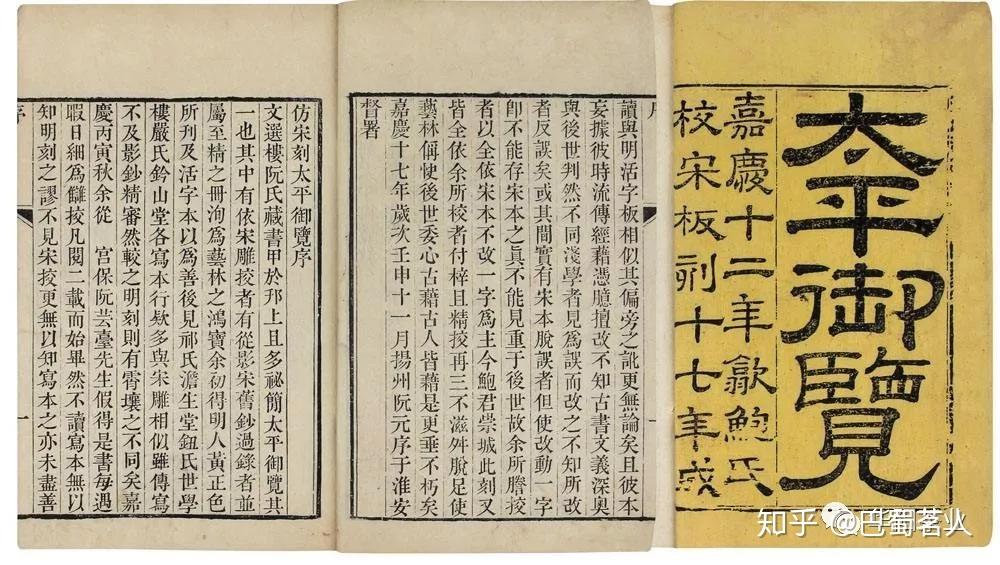 太平御覽
嘉慶十二年歙鮑氏
校宋板刻十七年成
讀與明活字板相似其偏旁之訛更無論矣且彼本
妄據彼時流傳經藉憑臆擅改不知古書文義深奧
與後世判然不同淺學者見爲誤而改之不知所改
者反誤矣或其間實有宋本脫誤者但使改動一字
卽不能存宋本之眞不能見重于後世故余所謄挍
者以全依宋本不改一字爲主今鮑君崇城此刻又
皆全依余所挍者付梓且精挍再三不滋舛脫足使
藝林偁快後世委心古藉古人皆藉是更垂不朽矣
嘉慶十七年歲次壬申十一月揚州阮元序于淮安
督署
一
仿宋刻太平御覽序
文選樓阮氏藏書甲於邗上且多祕簡太平御覽其
一也其中有依宋雕挍者有從影宋舊鈔過錄者並
屬至精之冊洵爲藝林之鴻寶余初得明人黃正色
所刊及活字本以爲善後見祁氏澹生堂鈕氏世學
樓嚴氏鈐山堂各寫本行欵多與宋雕相似雖傳寫
不及影鈔精審然較之明刻則有霄壤之不同矣嘉
慶丙寅秋余從 宮保阮芸臺先生假得是書每遇
暇日細爲讎挍凡閱二載而始畢然不讀寫本無以
知明刻之謬不見宋挍更無以知寫本之亦未盡善
序
一
知乎 @巴蜀茗火